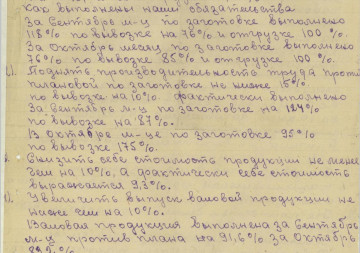 как выполнены наши обязательства
За Сентябрь м-ц по заготовке выполнено
118% по вывозке на 76% и отгрузке 100 %.
За Октябрь месяц по заготовке выполнено
76% по вывозке 85% и отгрузке 100 %.
Поднять производительность труда против
плановой по заготовке не ниже 15%
по вывозке на 10%. фактически выполнено
За Сентябрь м-ц по заготовке на 124%
по вывозке на 87%.
В октябре м-це по заготовке 95%
по вывозке 175%.
Снизить себе стоимость продукции не менее
чем на 10%, а фактически себе стоимость
выражается 9,3%.
Увеличить выпуск валовой продукции не
ниже чем на 10%.
Валовая продукция выполнена за Сентябрь
м-ц против плана на 91,6% за Октябрь